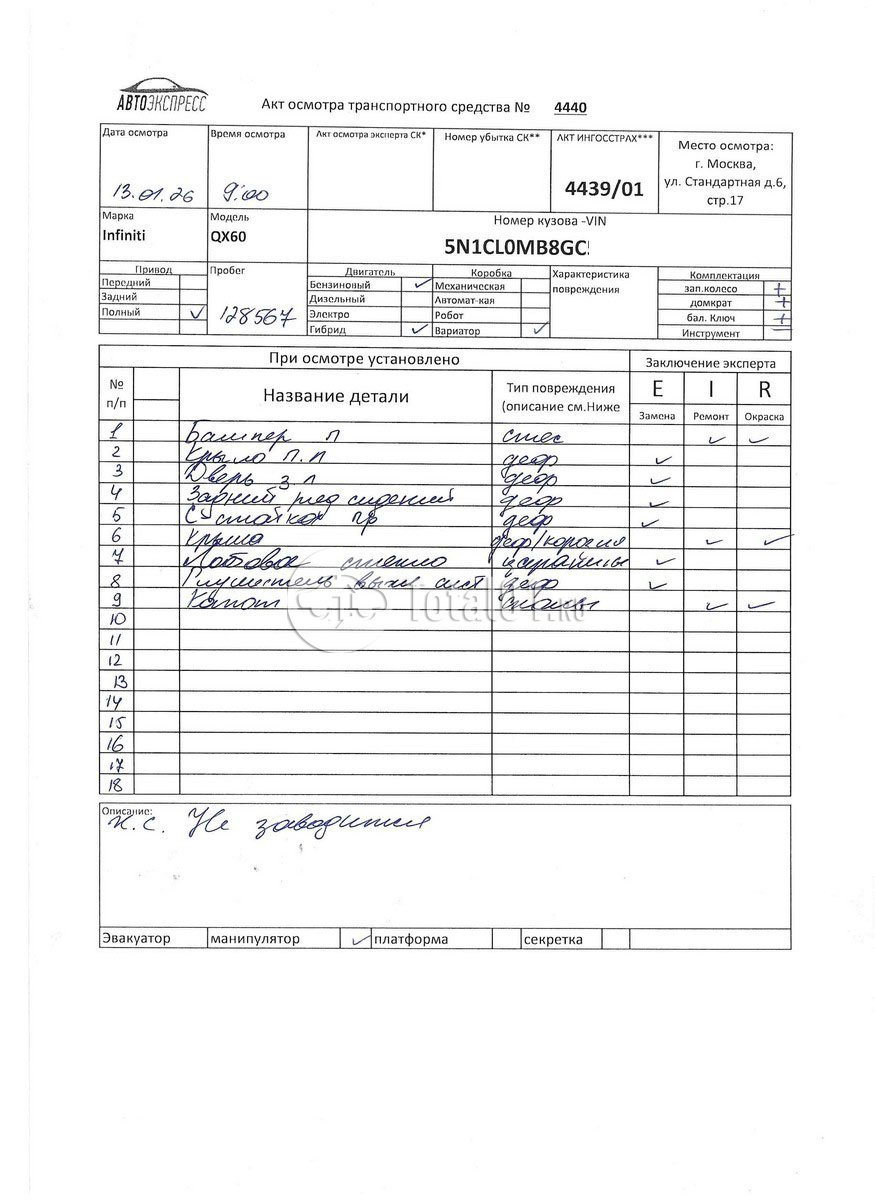 АВТОЭКСПРЕСС
Акт осмотра транспортного средства № 4440
Дата осмотра Время осмотра Акт осмотра эксперта СК* Номер убытка СК** АКТ ИНГОССТРАХ*** Место осмотра:
г. Москва,
13.01.26 9:00 4439/01 ул. Стандартная д.6,
стр.17
Марка Модель Номер кузова -VIN
Infiniti QX60 5N1CL0MB8GC
Привод Пробег Двигатель Коробка Характеристика Комплектация
Передний Бензиновый ✓ Механическая повреждения зап.колесо +
Задний Дизельный Автомат-кая домкрат +
Полный ✓ 128567 Электро Робот бал. Ключ +
Гибрид ✓ Вариатор ✓ Инструмент —
При осмотре установлено Заключение эксперта
№ п/п Название детали Тип повреждения (описание см.Ниже E I R
Замена Ремонт Окраска
1 Бампер п стес ✓ ✓
2 Крыло п.п деф ✓
3 Дверь з.п деф ✓
4 Задний ряд сидений деф ✓
5 Стойка пр деф ✓
6 Крыша деф/коррозия ✓ ✓
7 Лобовое стекло царапины ✓
8 Глушитель выхл сист деф ✓
9 Капот сколы ✓ ✓
10
11
12
13
14
15
16
17
18
Total01.ru
Описание:
н.с. Не заводится
Эвакуатор манипулятор ✓ платформа секретка